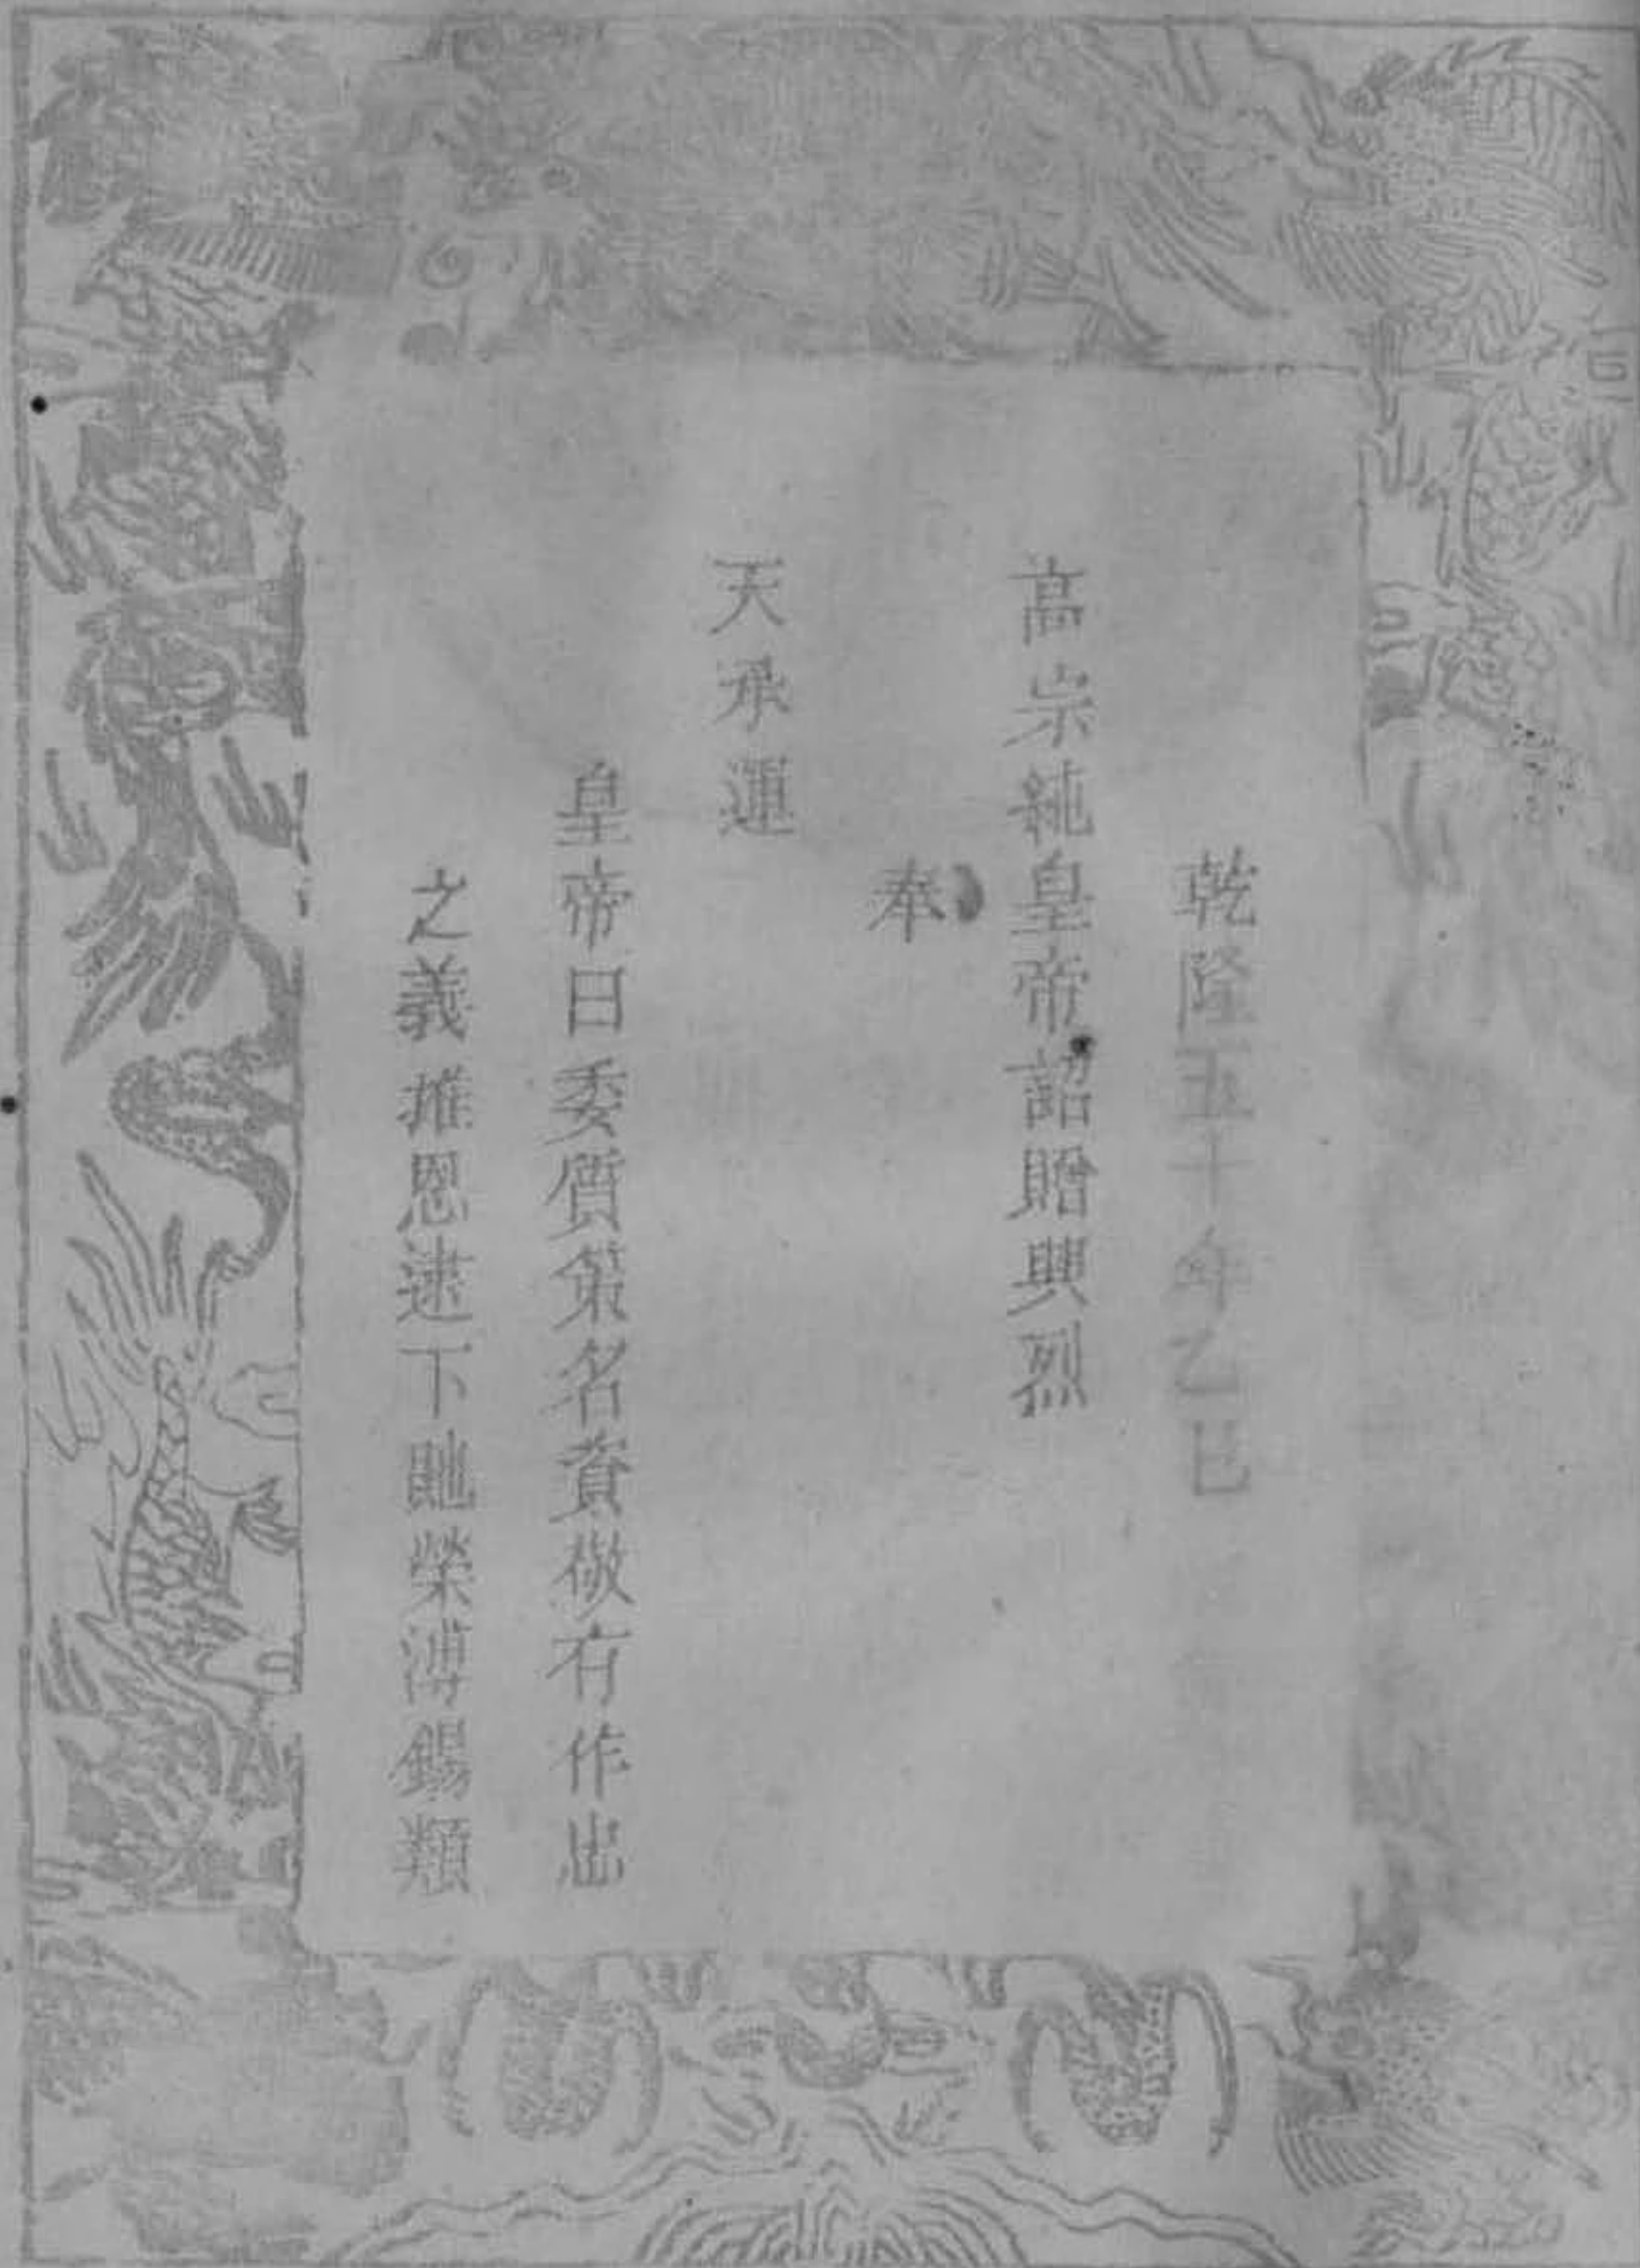 乾隆五十年乙巳
高宗純皇帝詔贈興烈
奉
天承運
皇帝曰委質策名資儆有作出
之義推恩逮下貤榮溥錫類